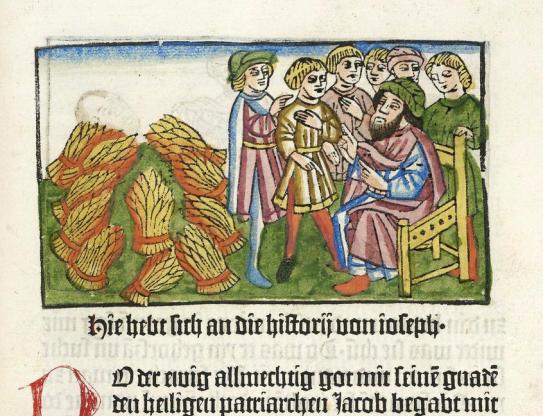 Hie hebt sich an die historij von ioseph.
DO der ewig allmechtig got mit seinē gnadē
den heiligen patriarchen Jacob begabt mit